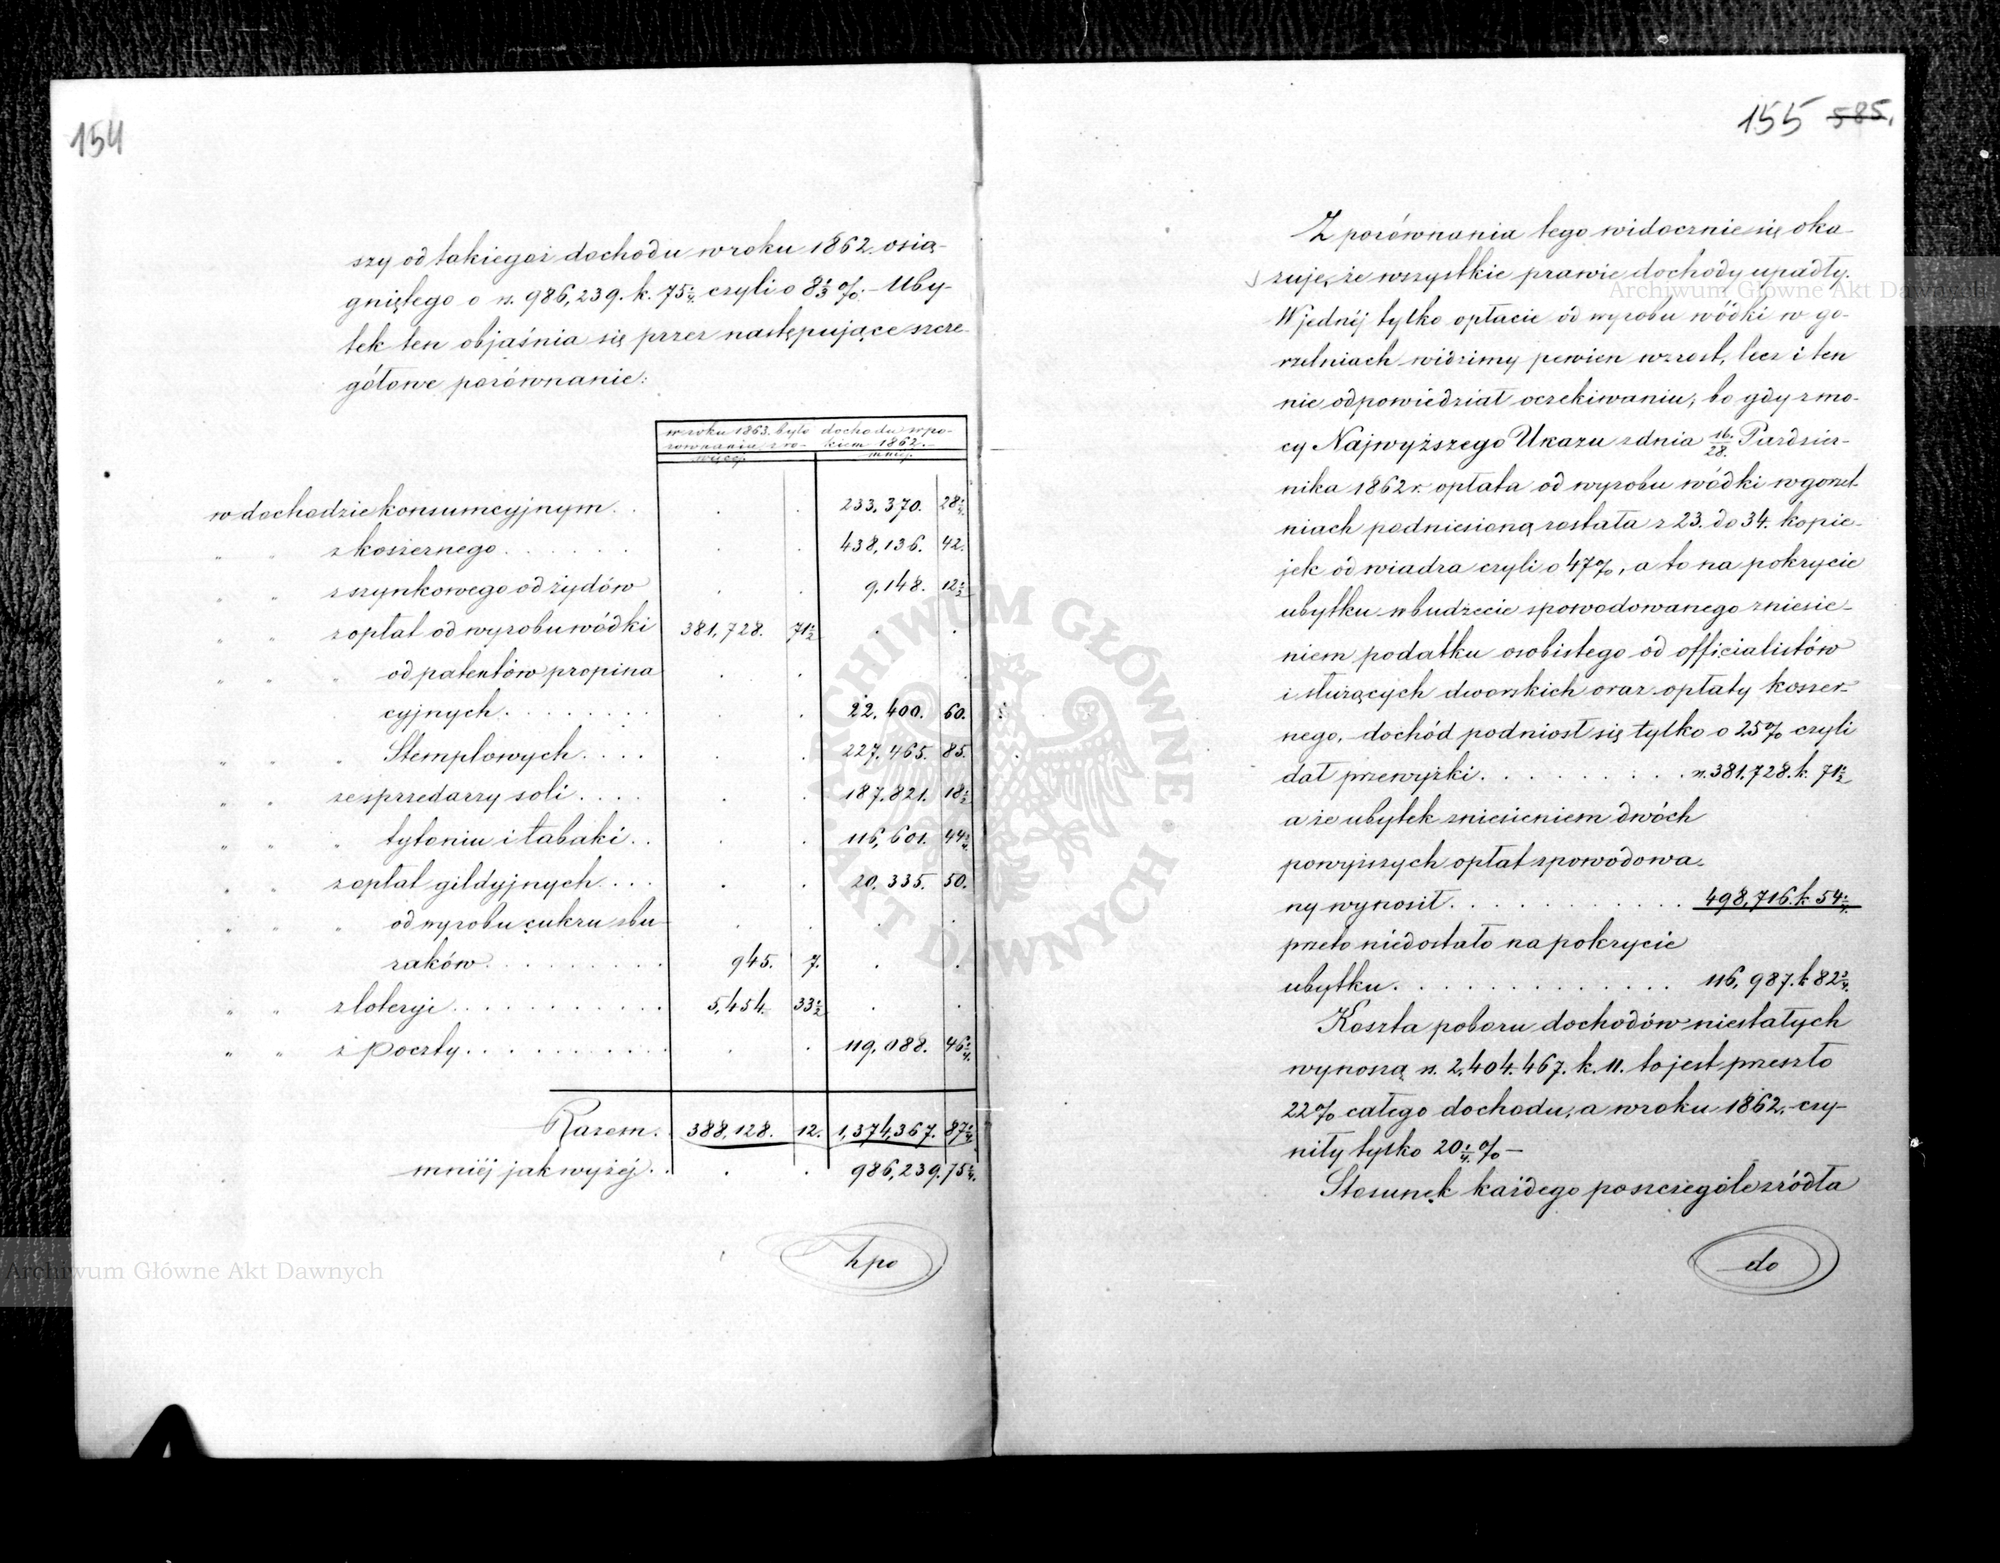 154
szy od takiegoż dochodu w roku 1862 osią-
gniętego o rs. 986,239. k. 75 1/4 czyli o 8 1/3 %. - Uby-
tek ten objaśnia się przez następujące szcze-
gółowe porównanie:
w roku 1863. było dochodu w po-
równaniu z ro- kiem 1862.-
więcej. mniej.
w dochodzie konsumcyjnym . . . . 233,370. 28 1/4
" " z koszernego . . . . . . . . 438,136. 42.
" " z szynkowego od żydów . . 9,148. 12 1/2
" " z opłat od wyrobu wódki 381,728. 71 1/2 . .
" " " od patentów propina
cyjnych . . . . . . . . . 22,400. 60.
" " " Stemplowych . . . . . . 227,465. 85.
" " ze sprzedarzy soli . . . . . . 187,821. 18 1/2
" " " tytoniu i tabaki . . . . 116,601. 44 3/4
" " z opłat gildyjnych . . . . . . 20,335. 50.
" " " od wyrobu cukru z bu-
raków . . . . . . . . . 945. 7. . .
" " z loteryi . . . . . . . . . . 5,454. 33 1/2 . .
" " z Poczty . . . . . . . . . . . . 119,088. 46 1/4
Razem . 388,128. 12. 1,374,367. 87 1/4
mniéj jak wyżéj . . . . 986,239. 75 1/4
hpo
155 585.
Z porównania tego widocznie się oka-
zuje, że wszystkie prawie dochody upadły.
W jednéj tylko opłacie od wyrobu wódki w go-
rzelniach widzimy pewien wzrost, lecz i ten
nie odpowiedział oczekiwaniu; bo gdy z mo-
cy Najwyższego Ukazu z dnia 16/28. Paździer-
nika 1862 r. opłata od wyrobu wódki w gorzel-
niach podniesioną została z 23. do 34. kopie-
jek od wiadra czyli o 47%, a to na pokrycie
ubytku w budżecie spowodowanego zniesie-
niem podatku osobistego od officialistów
i służących dworskich oraz opłaty koszer-
nego, - dochód podniosł się tylko o 25% czyli
dał przewyżki . . . . . . . . . rs. 381,728. k. 71 1/2
a że ubytek zniesieniem dwóch
powyższych opłat spowodowa-
ny wynosił . . . . . . . . . . . . 498,716. k. 54 1/4
przeto niedostało na pokrycie
ubytku . . . . . . . . . . . . . . 116,987. k. 82 3/4.
Koszta poboru dochodów niestałych
wynoszą rs. 2,404,467. k. 11. to jest przeszło
22% całego dochodu, a w roku 1862. czy-
niły tylko 20 1/4 % -
Stosunek każdego poszczególe źródła
do
Archiwum Główne Akt Dawnych
Archiwum Główne Akt Dawnych
ARCHIWUM GŁÓWNE · AKT DAWNYCH ·